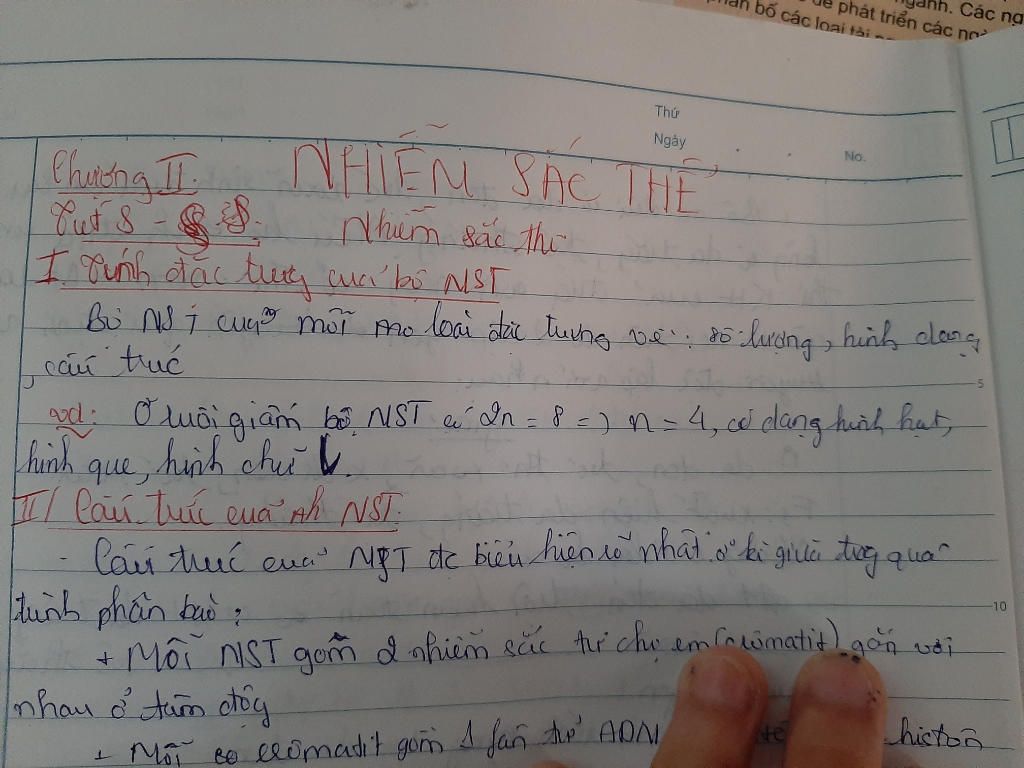 ngành. Các ng
để phát triển các ngà
phân bố các loại tài
Thứ
Ngày
No.
Chương II. NHIỄM SẮC THỂ
Tiết 8 - 8. Nhiễm sắc thể
I. Tính đặc trưng của bộ NST
Bộ NST của mỗi loài đặc trưng về: số lượng, hình dạng
, cấu trúc
5
vd: Ở ruồi giấm bộ NST có 2n = 8 => n = 4, có dạng hình hạt,
hình que, hình chữ V.
II/ Cấu trúc của NST.
- Cấu trúc của NST đc biểu hiện rõ nhất ở kì giữa trog quá
trình phân bào:
10
+ Mỗi NST gồm 2 nhiễm sắc tử chị em (crômatit) gắn với
nhau ở tâm độg
+ Mỗi crômatit gồm 1 fân tử ADN histôn